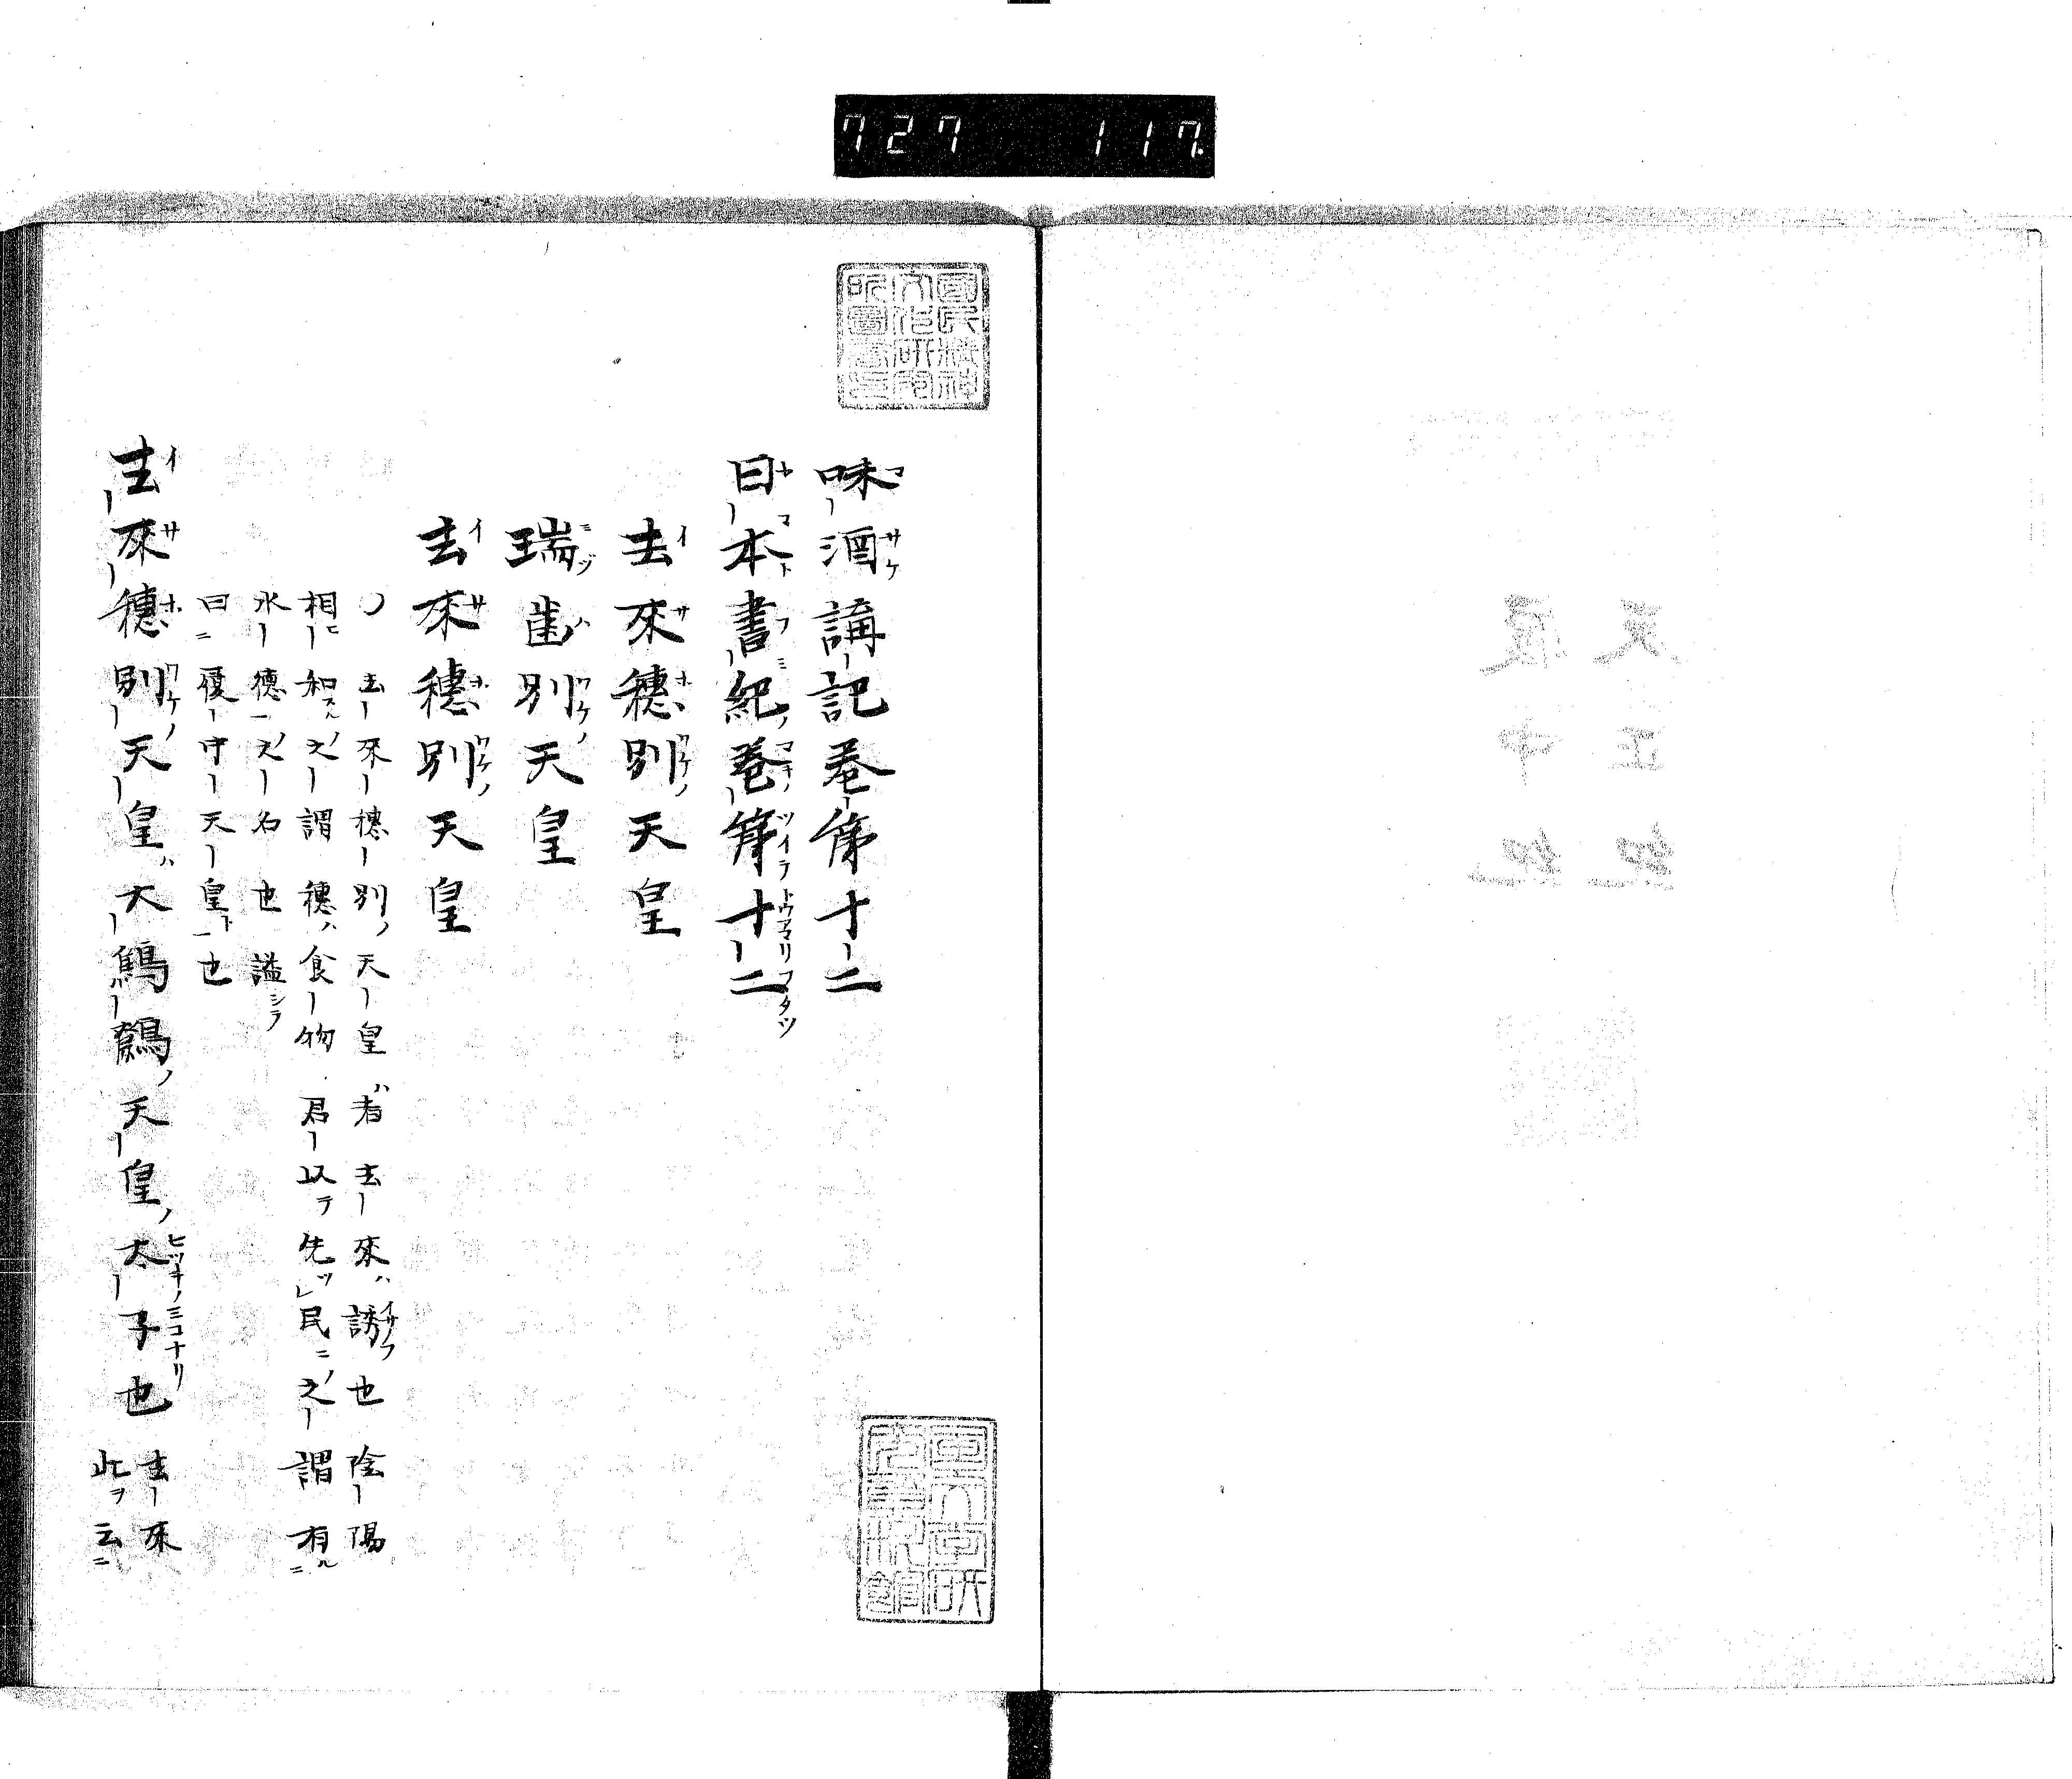 727 117
國民精神
文化研究
所圖書印
味酒講記卷第十二
日本書紀卷第十二
去來穗別天皇
瑞齒別天皇
去來穗別天皇
〇去來穗別ノ天皇ハ者去來ハ誘也陰陽
相ヒ和スルノ之謂穗ハ食物君以テ先ツレ民ニノ之謂有ルニ
水德ノ之名也謚シテ
曰ニ履中天皇ト一也
去來穗別天皇ハ大鷦鷯ノ天皇ノ太子也 去來
此ヲ云ニ
國文學研
究資料館